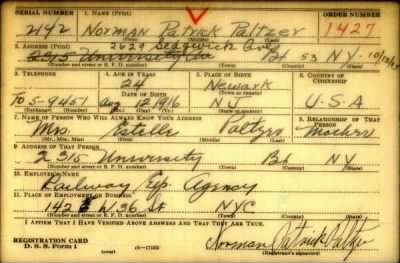 SERIAL NUMBER 1. NAME (Print) ORDER NUMBER
2142 Norman Patrick Paltzer 1427
(First) (Middle) (Last)
2. ADDRESS (Print) 2629 Sedgwick Ave
2315 University Ave Bx 53 N.Y.
(Number and street or R. F. D. number) (Town) (County) (State)
3. TELEPHONE 4. AGE IN YEARS 5. PLACE OF BIRTH 6. COUNTRY OF CITIZENSHIP
24 Newark
DATE OF BIRTH (Town or county)
TO 5-9457 Aug 12 1916 N J U.S.A
(Exchange) (Number) (Mo.) (Day) (Yr.) (State or country)
7. NAME OF PERSON WHO WILL ALWAYS KNOW YOUR ADDRESS 8. RELATIONSHIP OF THAT PERSON
Mrs. Estelle Mother
(Mr., Mrs., Miss) (First) (Middle) (Last)
9. ADDRESS OF THAT PERSON
2315 University Bx NY
(Number and street or R. F. D. number) (Town) (County) (State)
10. EMPLOYER'S NAME
Railway Exp. Agency
11. PLACE OF EMPLOYMENT OR BUSINESS
142 W 36 St NYC
(Number and street or R. F. D. number) (Town) (County) (State)
I AFFIRM THAT I HAVE VERIFIED ABOVE ANSWERS AND THAT THEY ARE TRUE.
REGISTRATION CARD
D. S. S. Form 1 (over) 16-17105 Norman Patrick Paltzer
(Registrant's signature)